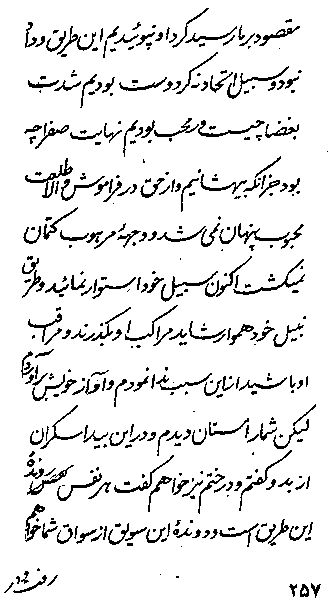 مقصود بر ما رسید کرد او نپوئیدیم این طریق وداد
نبود و سبیل اتحاد نه کرد دست بودیم شدت
بغضا چیست و رمحب بودیم نهایت صفرا چه
بود جز آنکه بیهشانیم و از حق در فراموش و الا طلعت
محبوب پنهان نمی شد و وجهۀ مرهوب کتمان
نمیگشت اکنون سبیل خود استوار نمائید و طریق
نبیل خود هموار شاید مراکب او بگذرند و مراقب
او باشید از این سبب ندا نمودم و آواز خویش برآوردم
لیکن شما را مستان دیدم و در این بیدا سکران
از بدو گفتم و در ختم نیز خواهم گفت هر نفس روندۀ
این طریق است و دوندۀ این سویق از سواق شما خواهم
۲۵۷